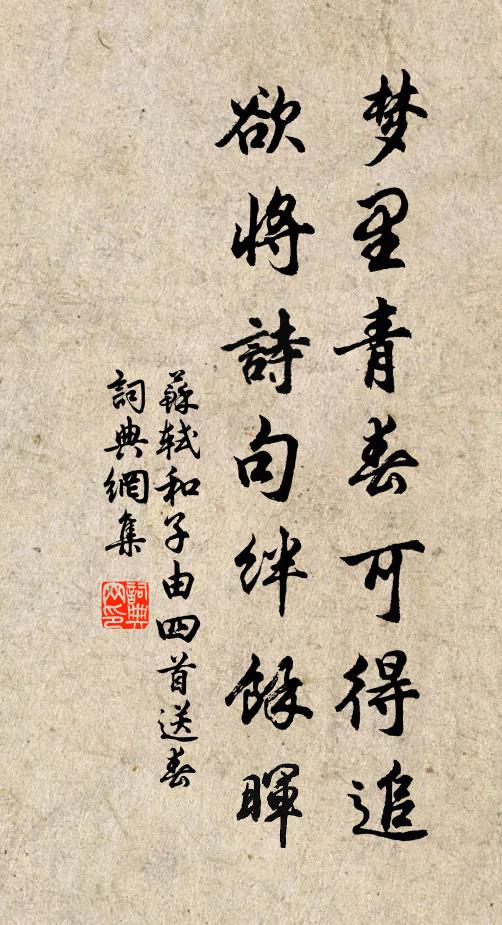 梦里青春可得追
欲将詩句絆餘暉
蘇軾和子由四首送春
詞典網集
詞典網印